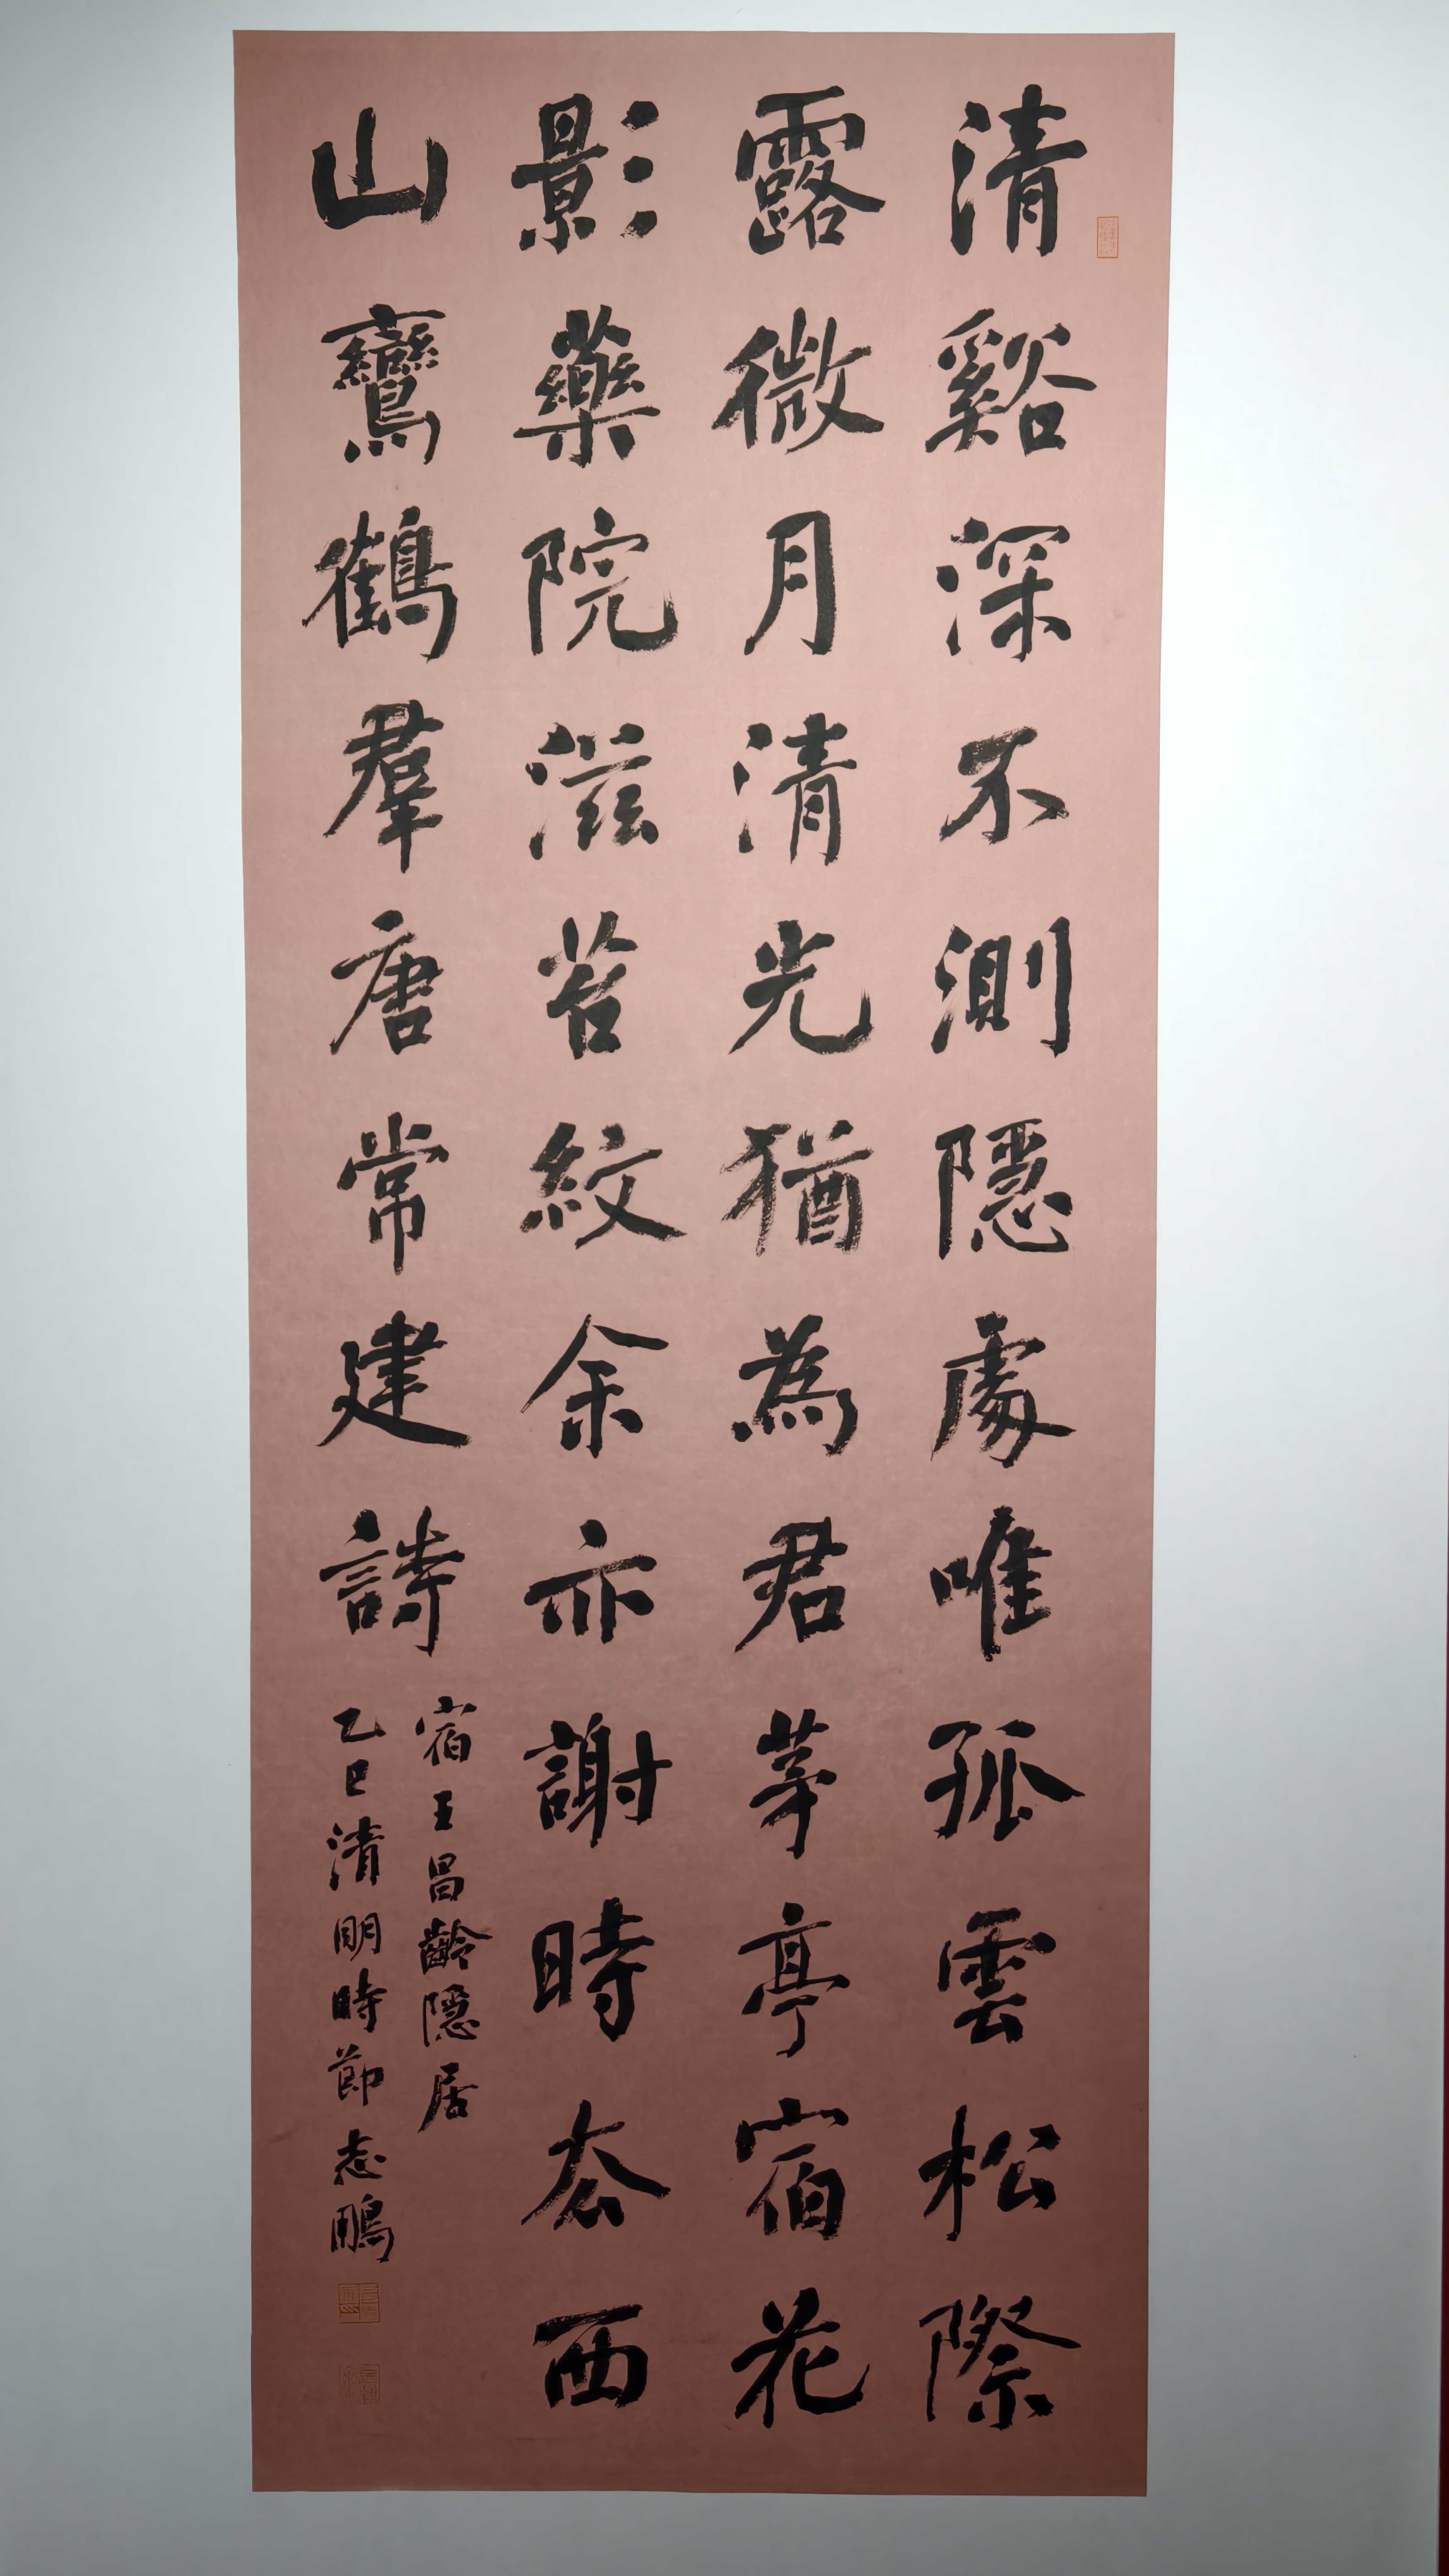 清谿深不測隱處唯孤雲松際
露微月清光猶為君茅亭宿花
影藥院滋苔紋余亦謝時去西
山鸞鶴羣唐常建詩
宿王昌齡隱居
乙巳清明時節志鵬